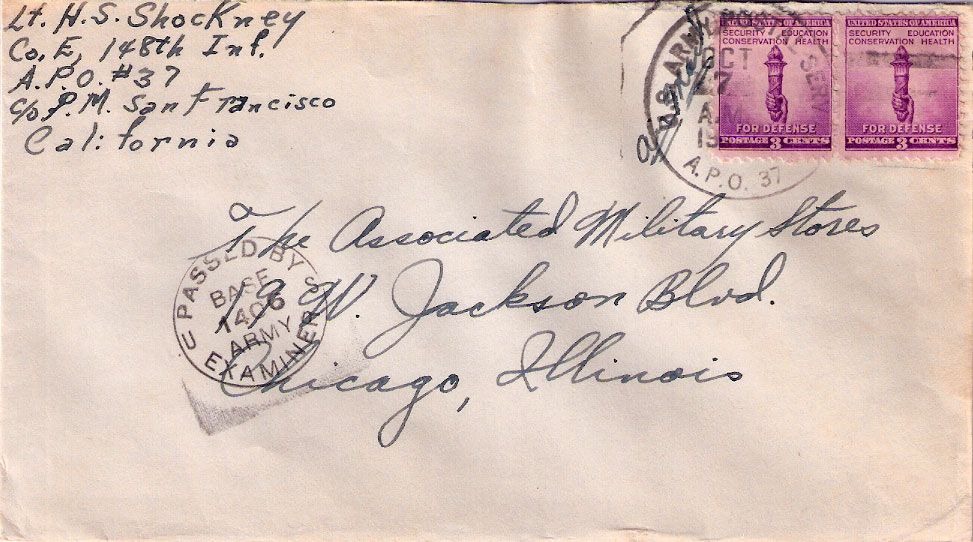 Lt. H.S. Shockney
Co. E, 148th Inf.
A.P.O. #37
c/o P.M. San Francisco
California
U.S. ARMY SERV
OCT
27
A.M.
19
A.P.O. 37
UNITED STATES OF AMERICA
SECURITY EDUCATION
CONSERVATION HEALTH
FOR DEFENSE
POSTAGE 3 CENTS
UNITED STATES OF AMERICA
SECURITY EDUCATION
CONSERVATION HEALTH
FOR DEFENSE
POSTAGE 3 CENTS
The Associated Military Stores
W. Jackson Blvd.
Chicago, Illinois
PASSED BY
BASE
1406
ARMY
EXAMINER
U S